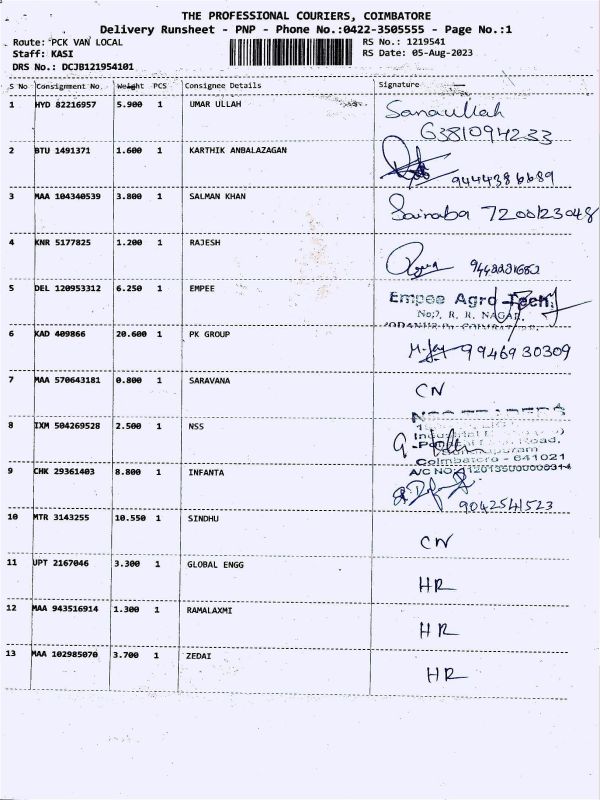 THE PROFESSIONAL COURIERS, COIMBATORE
Delivery Runsheet - PNP - Phone No.:0422-3505555 - Page No.:1
Route: PCK VAN LOCAL RS No.: 1219541
Staff: KASI RS Date: 05-Aug-2023
DRS No.: DCJB121954101
S No Consignment No. Weight PCS Consignee Details Signature
1 HYD 82216957 5.900 1 UMAR ULLAH Sanaullah
6381094233
2 BTU 1491371 1.600 1 KARTHIK ANBALAZAGAN
9444386689
3 MAA 104340539 3.800 1 SALMAN KHAN Sainaba 7200123048
4 KNR 5177825 1.200 1 RAJESH
5 DEL 120953312 6.250 1 EMPEE Empee Agro Tech,
No;7, R. R. NAGAR,
6 KAD 409866 20.600 1 PK GROUP 9946930309
7 MAA 570643181 0.800 1 SARAVANA CN
8 IXM 504269528 2.500 1 NSS
Road,
Coimbatore - 641021
9 CHK 29361403 8.800 1 INFANTA A/C NO:
9042541523
10 MTR 3143255 10.550 1 SINDHU CN
11 UPT 2167046 3.300 1 GLOBAL ENGG HR
12 MAA 943516914 1.300 1 RAMALAXMI HR
13 MAA 102985070 3.700 1 ZEDAI HR